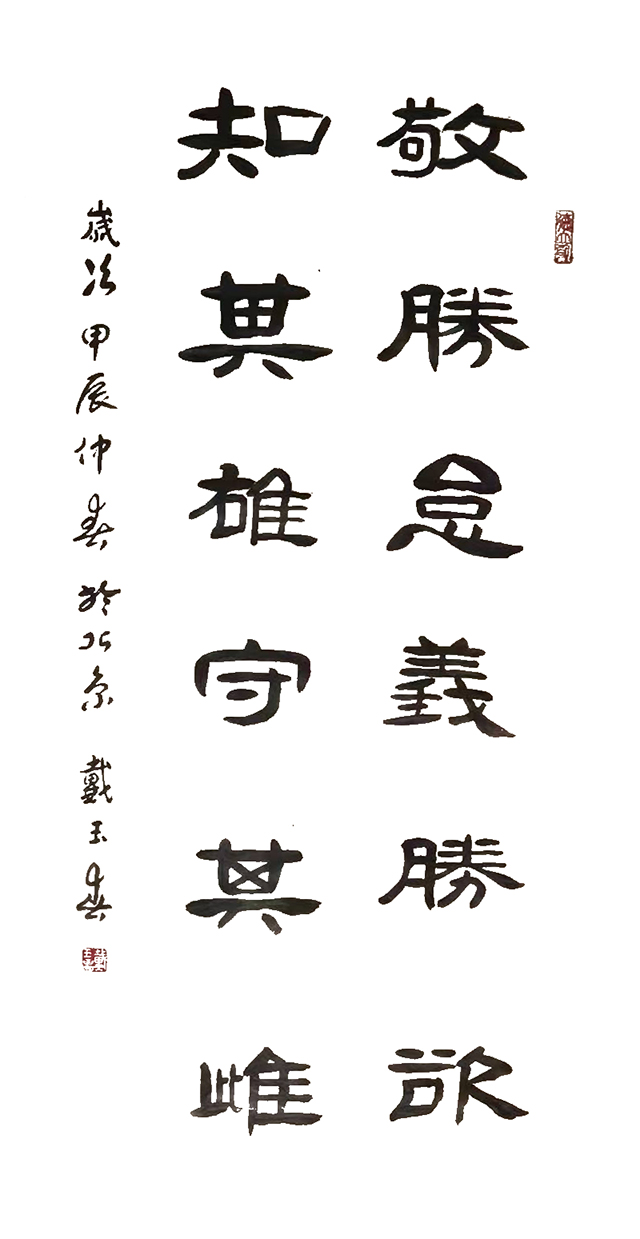 敬勝怠義勝欲
知其雄守其雌
歲次甲辰仲春於北京 戴玉春